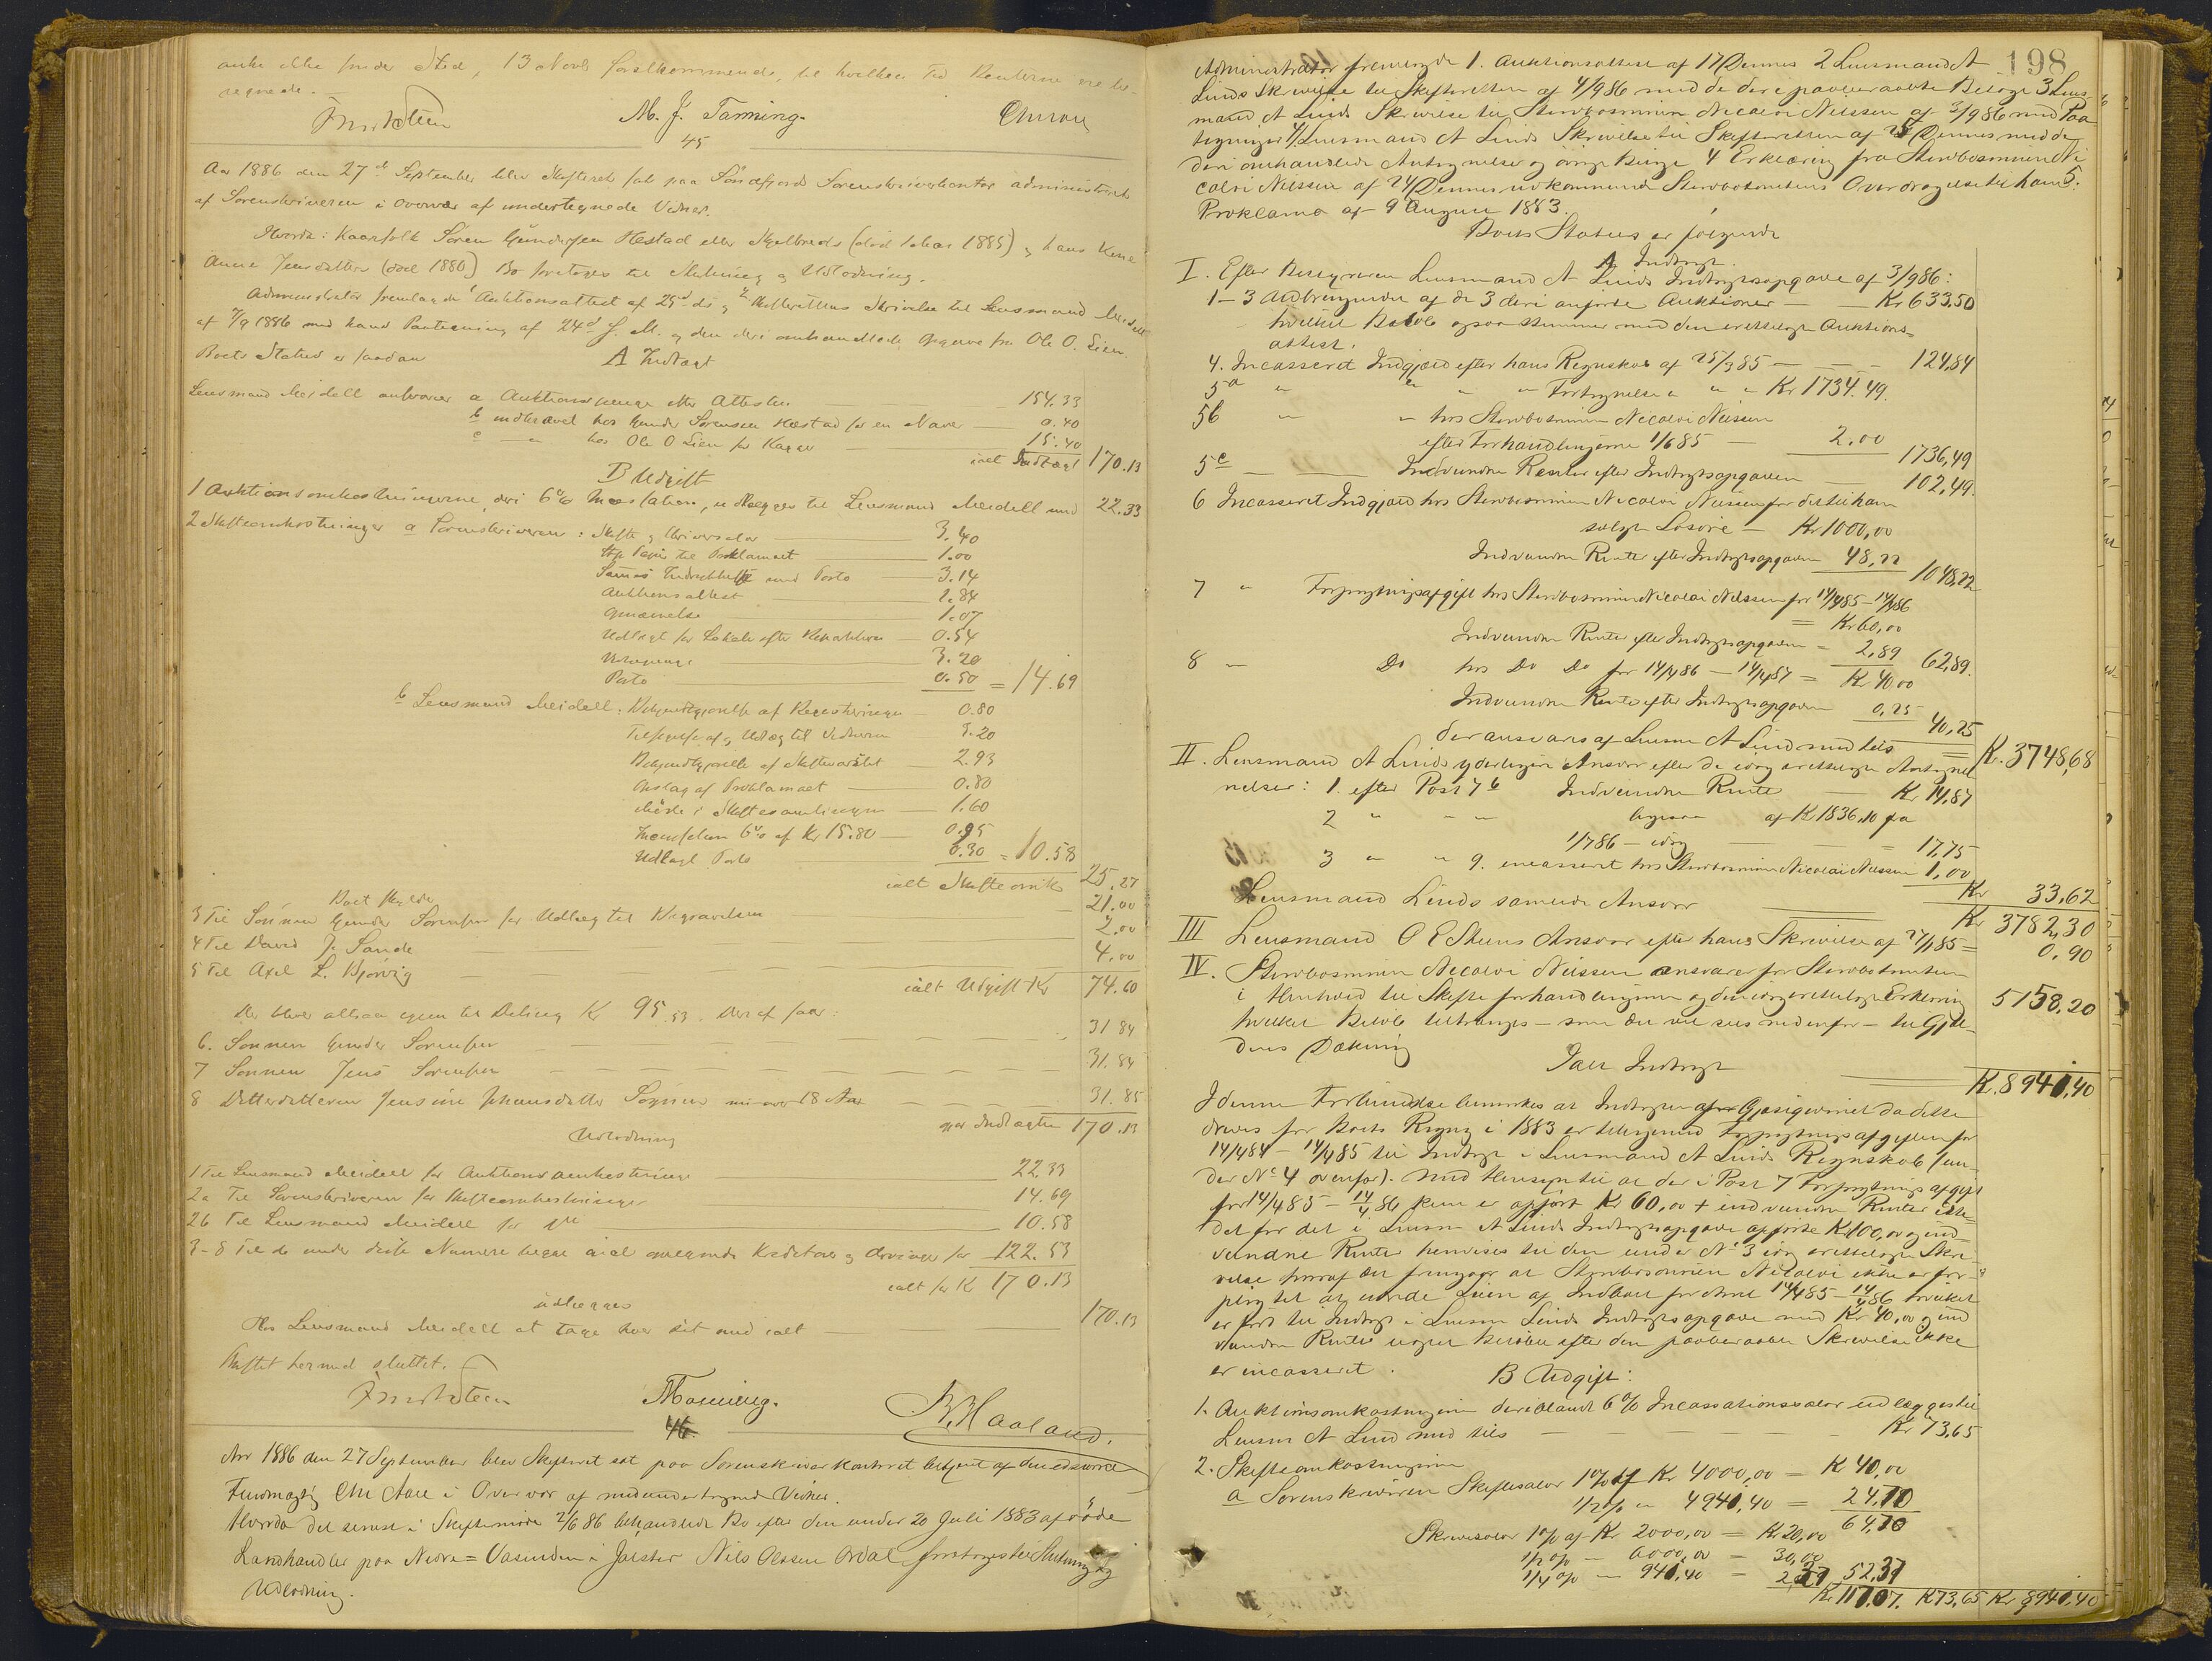 anke ikke finder Sted, 13 Novb førstkommende, til hvilken Tid Renterne ere be-
regnede.
M. J. Tanning.
45
Aar 1886 den 27de September blev Skifteret sat paa Søndfjords Sorenskriverkontor administreret
af Sorenskriveren i Overvær af undertegnede Vidner.
Hvorda: Kaarfolk Søren Gundersen Hestad eller Skjelbreds (død 1 Mar 1885) & hans Kone
Anne Jensdatter (død 1880) Bo foretoges til Slutning og Udlodning.
Administrator fremlagde 1 Auktionsattest af 25de ds & 2 Skifterettens Skrivelse til Lensmand Meidell
af 7/9 1886 med hans Paategning af 24de d. M. og den deri omhandlede Opgave fra Ole O. Lien
Boets Status er saadan
A Indtægt
Lensmand Meidell ansvarer a Auktionspenge efter Attesten 154.33
b indkrævet hos Gunder Sørensen Hestad for en Naver 0.40
c — " hos Ole O Lien for Kagge 15.40
ialt Indtægt 170.13
B Udgift
1 Auktionsomkostningerne, deri 6% Incassation, udlægges til Lensmand Meidell med 22.33
2 Skifteomkostninger a Sorenskriveren: Skifte & Skriversalær 3.40
Stp Papir til Proklamaet 1.00
Sammes Indrykkelse med Porto 3.14
Auktionsattest 1.84
1.07
Udlagt for Lokale efter 0.54
3.20
Porto 0.50 = 14.69
b Lensmand Meidell: Bekjendtgjørelse af Registreringen 0.80
Tilsigelse af og Udlæg til Vidnerne 3.20
Bekjendtgjørelse af 2.93
Opslag af Proklamaet 0.80
Møde i Skiftesamlingen 1.60
Incassation 6% af Kr 15.80 0.95
Udlagt Porto 0.30 = 10.58
ialt Skifteomk 25.27
Boets Gjeld
3 Til Sønnen Gunder Sørensen for Udlæg til Begravelsen 21.00
4 Til David J. Sande 2.00
5 Til Axel L. Bjørvig 4.00
ialt Udgift Kr 74.60
Der bliver altsaa igjen til Deling Kr 95.53. Deraf faar:
6. Sønnen Gunder Sørensen 31.84
7 Sønnen Jens Sørensen 31.84
8 Datterdatteren Jensine Johannesdatter Søgnen nu over 18 Aar 31.85
gør Indtægten 170.13
Udlodning
1 Til Lensmand Meidell for Auktionsomkostninger 22.33
2a Til Sorenskriveren for Skifteomkostninger 14.69
2b Til Lensmand Meidell for do 10.58
3-8 Til de under disse Numere begge incl opregnede Kreditorer & Arvinger for 122.53
ialt for K 170.13
udlægges
Hos Lensmand Meidell at tage hver sit med ialt 170.13
Skiftet hermed sluttet.
Tanning. B. Haaland.
46.
Aar 1886 den 27 September blev Skifteret sat paa Sorenskriverkontoret betjent af den edsvorne
Fuldmægtig Chr Aall i Overvær af nedundertegnede Vidner.
Hvorda det senest i Skiftemøde 2/6 86 behandlede Bo efter den under 20 Juli 1883 afdøde
Landhandler paa Nedre=Vasenden i Jølster Nils Olssen Ordal foretoges til Slutning og
Udlodning.
198
Administrator fremlagde 1. Auktionsattest af 17 Dennes 2 Lensmand A
Linds Skrivelse til Skifteretten af 4/9 86 med de deri paaberaabte Bilage 3 Lens-
mand A Linds Skrivelse til Sterbosønnen Nicolai Nilssen af 3/9 86 med Paa
tegninger 4/ Lensmand A Linds Skrivelse til Skifteretten af 25 Dennes med de
deri omhandlede Antegnelser og øvrige Bilage 4 Erklæring fra Sterbosønnen Ni
colai Nilssen af 24 Dennes vedkommende Sterbobonitens Overdragelse til ham 5:
Proklama af 9 August 1883.
Boets Status er følgende
A Indtægt.
I. Efter Bestyreren Lensmand A Linds Indtægtsopgave af 3/9 86:
1-3 Udbringende af de 3 deri anførte Auktioner — Kr 633,50
hvilket Beløb ogsaa stemmer med den erettelagte Auktions=
attest.
4. Incasseret Indgjæld efter hans Regnskab af 25/3 85 — 124,84
5a " " " " Fortegnelse " " " Kr 1734.49.
5b " " hos Sterbosønnen Nicolai Nilssen
efter Forhandlingerne 1/6 85 — 2.00
1736,49
5c — Indvundne Renter efter Indtægtsopgaven 102,49.
6 Incasseret Indgjæld hos Sterbosønnen Nicolai Nilssen for det til ham
solgte Løsøre — Kr 1000,00
Indvundne Renter efter Indtægtsopgaven 48,22
1048,22
7 " Forpagtningsafgift hos Sterbosønnen Nicolai Nilssen for 14/4 85 - 14/4 86
= Kr 60,00
Indvundne Renter efter Indtægtsopgaven = 2,89 62,89.
8 " Do hos Do Do for 14/4 86 - 14/4 87 = Kr 40,00
Indvundne Rente efter Indtægtsopgaven 0,25 40,25
der ansvares af Lensm A Lind med tils = K. 3748,68
II. Lensmand A Linds yderligere Ansvar efter de idag erettelagte Antegnel
nelser: 1. efter Post 7b Indvundne Rente — Kr 14,87
2 " " " ligesaa af K 1836,10 fra
1/7 86 - idag = 17,75
3 " " 9. incasseret hos Sterbosønnen Nicolai Nilssen 1,00
Kr 33,62
Lensmand Linds samlede Ansvar Kr 3782,30
III Lensmand O E Steens Ansvar efter hans Skrivelse af 27/1 85 = 0.90
IV. Sterbosønnen Nicolai Nilssen ansvarer for Sterboboniten
i Henhold til Skifteforhandlingerne og den idag erettelagte Erklæring 5158,20
hvilket Beløb tiltrænges - som det vil sees nedenfor - til Gjæl-
dens Dækning
Ialt Indtægt K. 8941,40
I denne Forbindelse bemærkes at Indtægten af Gjæstgiveriet da dette
dreves for Boets Regning i 1883 er tilligemed Forpagtningsafgiften for
14/4 84 - 14/4 85 til Indtægt i Lensmand A Linds Regnskab (un-
der No 4 ovenfor). Med Hensyn til at der i Post 7 Forpagtningsafgift
for 14/4 85 - 14/4 86 kun er opført Kr 60,00 + indvundne Renter iste-
detfor det i Lensm A Linds Indtægtsopgave opførte Kr 100,00 og ind-
vundne Renter henvises til den under No 3 idag erettelagte Skri
velse hvoraf det fremgaar at Sterbosønnen Nicolai ikke er for-
pligtet at udrede Leien af Indbuet for Aaret 14/4 85 - 14/4 86 hvilket
er ført til Indtægt i Lensm Linds Indtægtsopgave med Kr 40,00 og ind
vundne Renter uagtet Beløbet efter den paaberaabte Skrivelse ikke
er incasseret.
B Udgift:
1. Auktionsomkostningerne deriblandt 6% Incassationssalær udlægges til
Lensm A Lind med tils — Kr 73,65
2. Skifteomkostningerne
a Sorenskriveren Skiftesalær 1% af Kr 4000,00 = K 40,00
1/2 % " 4941,40 = 24,70
64,70
Skriversalær 1% af Kr 2000,00 = Kr 20,00
1/2 % — 6000,00 = 30,00
1/4 % — 941,40 = 2,37 52,37
Kr 117,07. K 73,65 Kr 8941,40